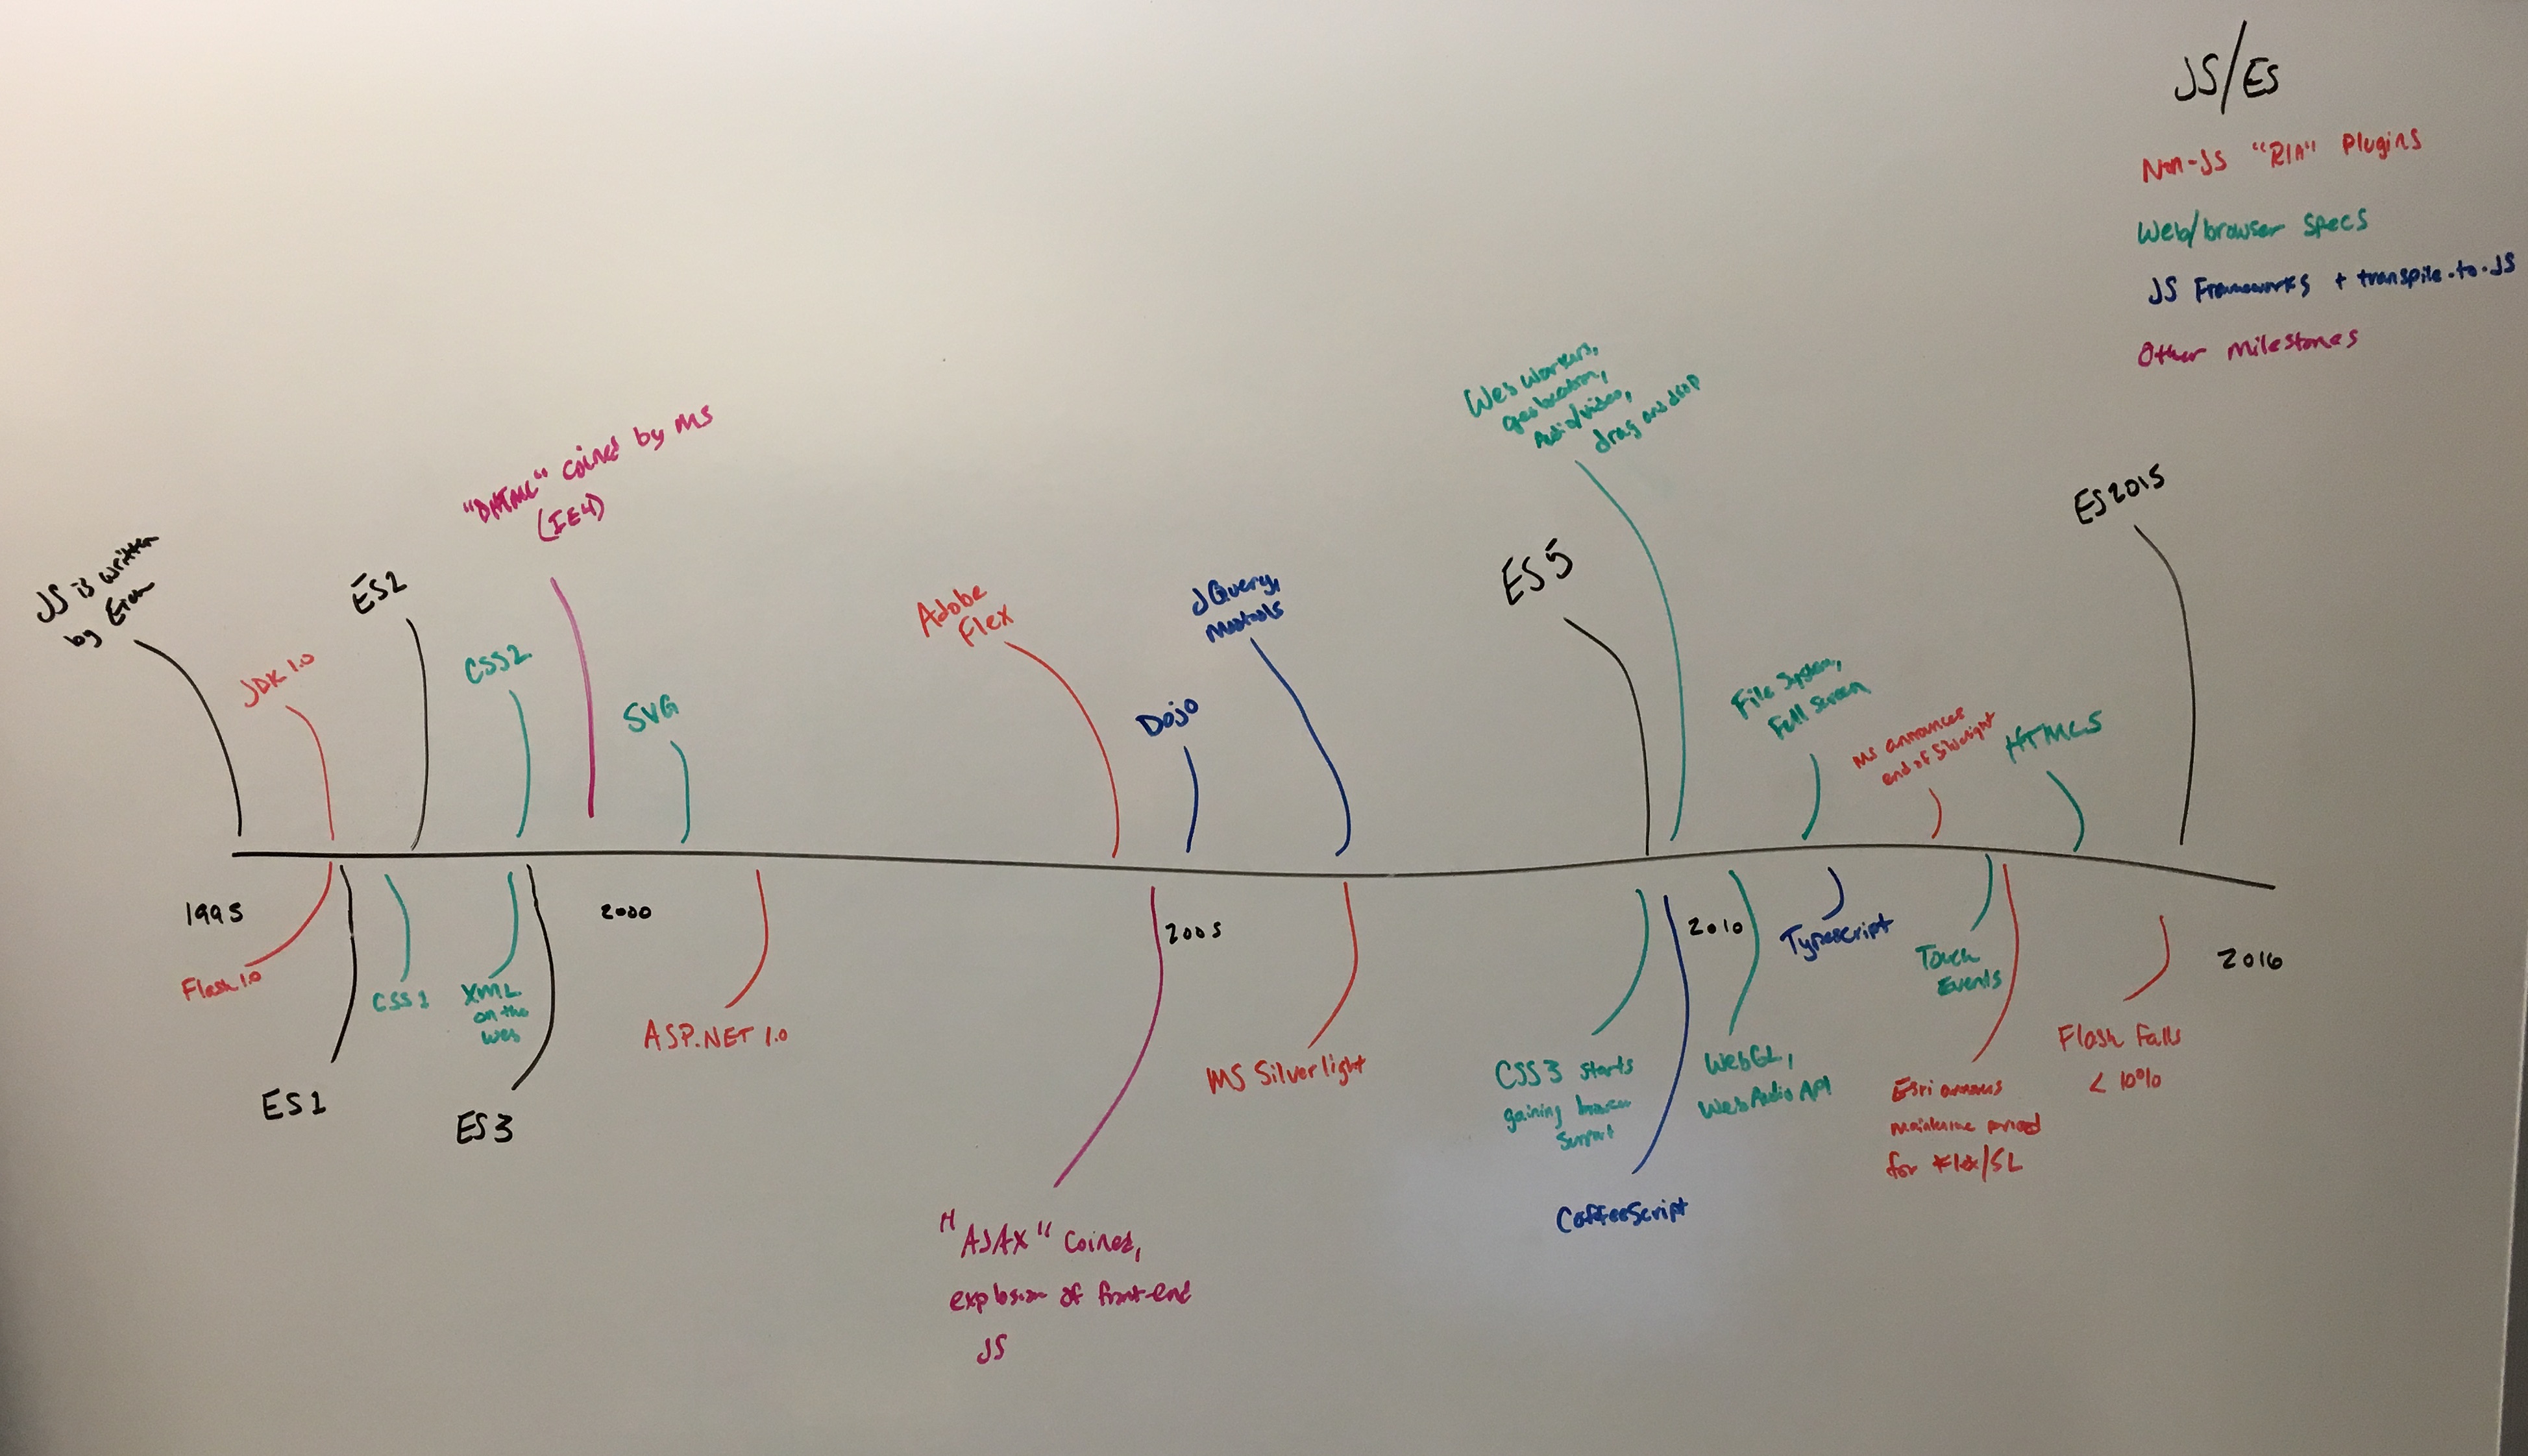 JS/ES
Non-JS "RIA" Plugins
Web/browser specs
JS Frameworks + transpile-to-JS
Other milestones
JS is written
by Eich
JDK 1.0
ES2
CSS2
"DHTML" coined by MS
(IE4)
SVG
Adobe
Flex
Dojo
JQuery,
Mootools
ES5
Web Workers,
geolocation,
Audio/video,
drag and drop
File System,
Full Screen
MS announces
end of Silverlight
HTML5
ES2015
1995
2000
2005
2010
2016
Flash 1.0
ES1
CSS1
XML
on the
web
ES3
ASP.NET 1.0
"AJAX" coined,
explosion of front-end
JS
MS Silverlight
CSS3 starts
gaining browser
support
CoffeeScript
WebGL,
Web Audio API
Typescript
Touch
Events
Esri
period
for Flex/SL
Flash Falls
< 10%